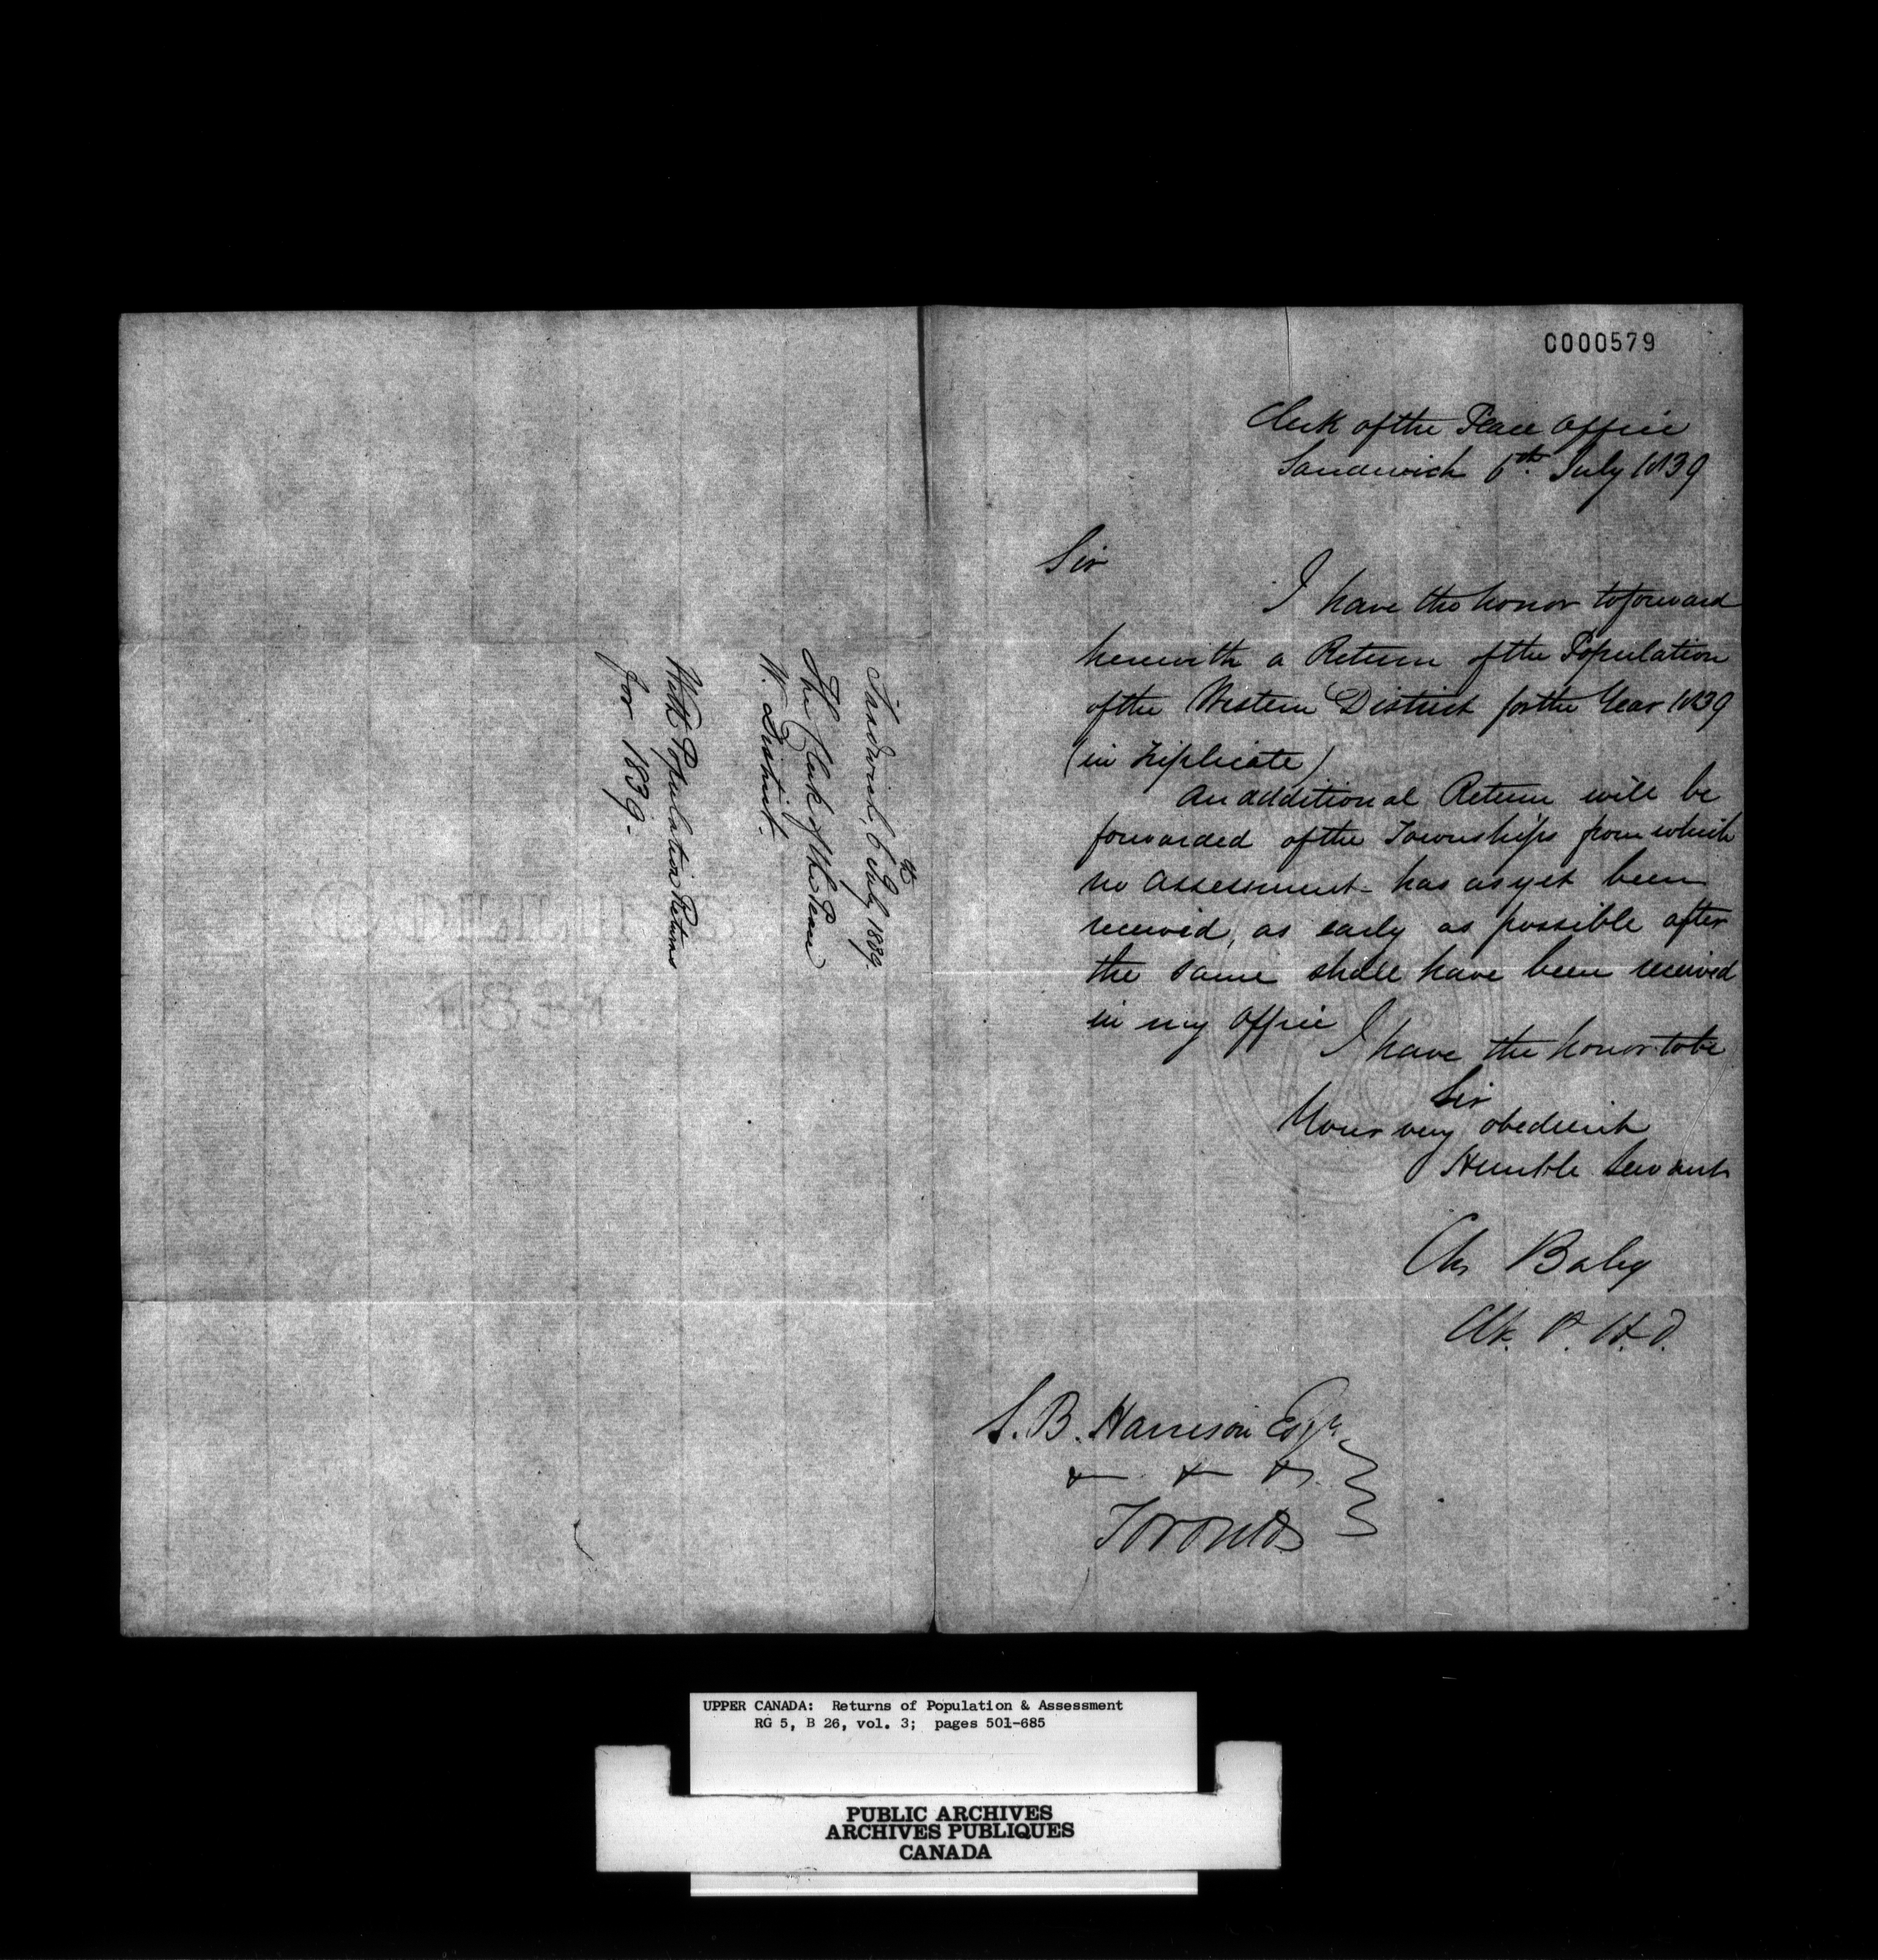 C000579
Clerk of the Peace Office
Sandwich 6th July 1839
Sir
I have the honor to forward
herewith a Return of the Population
of the Western District for the Year 1839
(in Triplicate)
An additional Return will be
forwarded of the Townships from which
no Assessment has as yet been
received, as early as possible after
the same shall have been received
in my Office
I have the honor to be
Sir
Your very obedient
Humble Servant
Chs Baby
Clk. P. W. D.
S. B. Harrison Esqr.
& & &.
Toronto
Sandwich, 6th July 1839.
The Clerk of the Peace
W. District.
With Population Returns
for 1839.
UPPER CANADA: Returns of Population & Assessment
RG 5, B 26, vol. 3; pages 501-685
PUBLIC ARCHIVES
ARCHIVES PUBLIQUES
CANADA